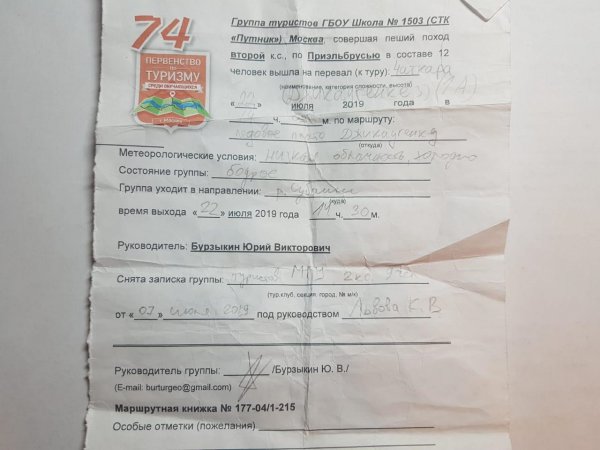 74
ПЕРВЕНСТВО
ПО
ТУРИЗМУ
СРЕДИ ОБУЧАЮЩИХСЯ
г. Москвы
Группа туристов ГБОУ Школа № 1503 (СТК
«Путник») Москва, совершая пеший поход
второй к.с., по Приэльбрусью в составе 12
человек вышла на перевал (к туру): Чаткара
(наименование, категория сложности, высота)
(Джикаугенкез) (1А)
« » июля 2019 года в
14 ч. м. по маршруту:
ледовое плато Джикаугенкёз
(откуда)
Метеорологические условия: низкая облачность, холодно
Состояние группы: бодрое
Группа уходит в направлении: р. Субаши
(куда)
время выхода «22» июля 2019 года 14 ч. 30 м.
Руководитель: Бурзыкин Юрий Викторович
Снята записка группы: туристов МГУ 2кс
(тур.клуб, секция. город, № м/к)
от «07» июля 2019 под руководством Львова К. В
Руководитель группы: /Бурзыкин Ю. В./
(E-mail: burturgeo@gmail.com)
Маршрутная книжка № 177-04/1-215
Особые отметки (пожелания)